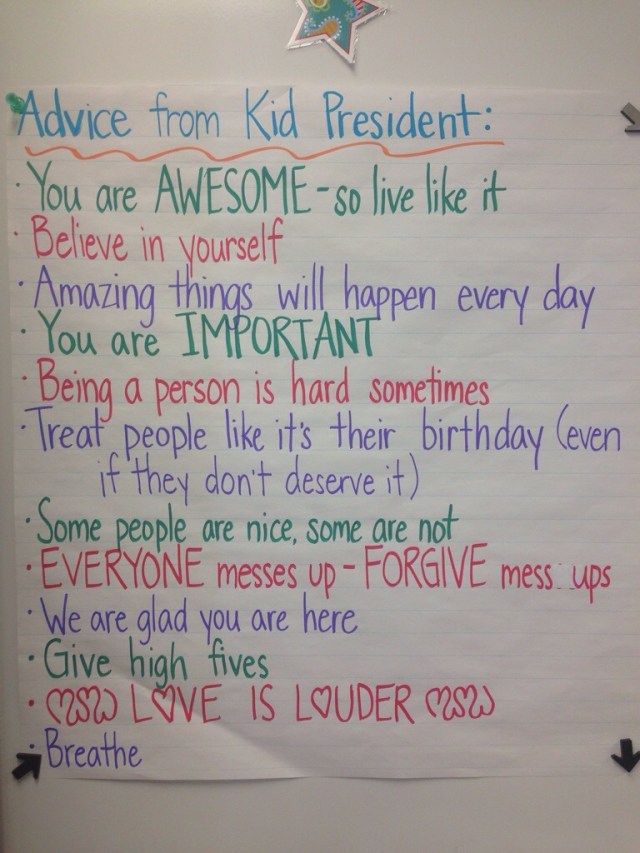 Advice from Kid President:
· You are AWESOME - so live like it
· Believe in yourself
· Amazing things will happen every day
· You are IMPORTANT
· Being a person is hard sometimes
· Treat people like it's their birthday (even
if they don't deserve it)
· Some people are nice, some are not
· EVERYONE messes up - FORGIVE mess ups
· We are glad you are here
· Give high fives
· LOVE IS LOUDER
· Breathe